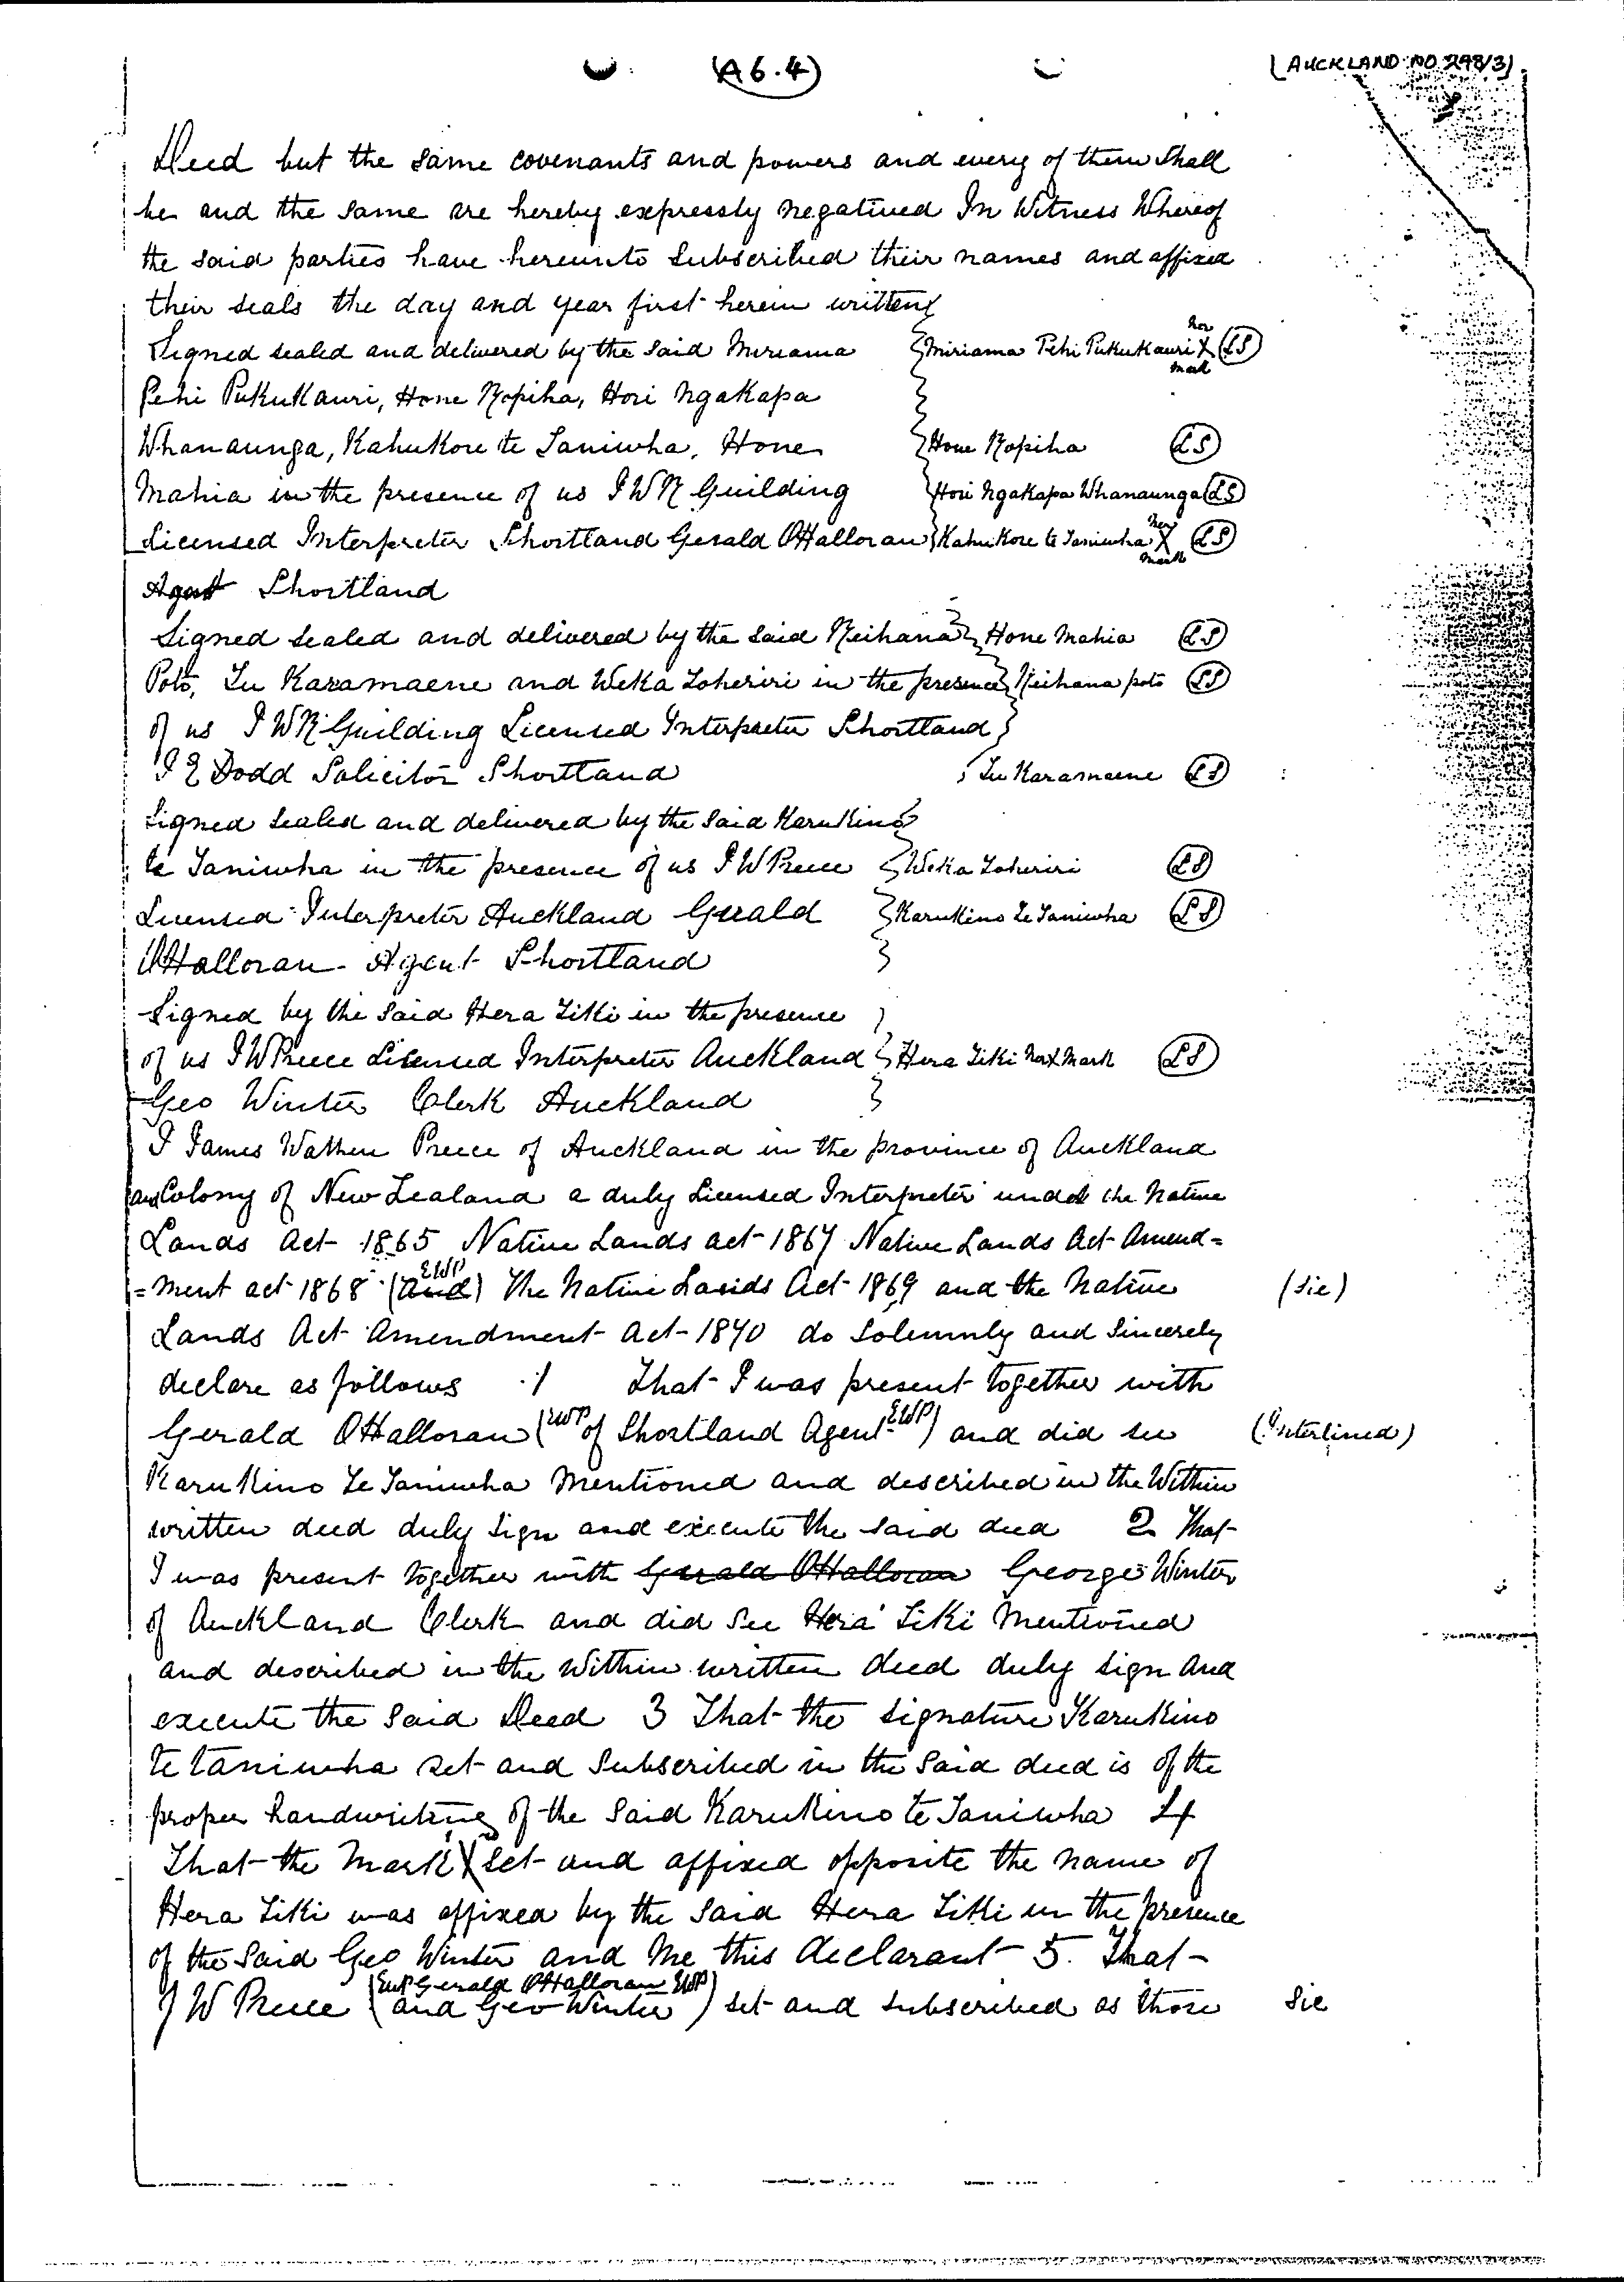 (A 6.4)
(AUCKLAND NO 298/3)
Deed but the same covenants and powers and every of them shall
be and the same are hereby expressly negatived In Witness Whereof
the said parties have hereunto subscribed their names and affixed
their seals the day and year first herein written
Signed sealed and delivered by the said Miriama } Miriama Pehi Pukukauri her X mark (LS)
Pehi Pukukauri, Hone Ropiha, Hori Ngakapa
Whanaunga, Kahukore te Taniwha, Hone } Hone Ropiha (LS)
Mahia in the presence of us J W R Guilding } Hori Ngakapa Whanaunga (LS)
Licensed Interpreter Shortland Gerald OHalloran } Kahukore te Taniwha her X mark (LS)
Agent Shortland
Signed sealed and delivered by the said Reihana } Hone Mahia (LS)
Poto, Tu Karamaene and Weka Toheriri in the presence } Reihana poto (LS)
of us J W R Guilding Licensed Interpreter Shortland }
J E Dodd Solicitor Shortland } Tu Karamaene (LS)
Signed sealed and delivered by the said Karukino }
te Taniwha in the presence of us J W Preece } Weka Toheriri (LS)
Licensed Interpreter Auckland Gerald } Karukino Te Taniwha (LS)
OHalloran - Agent Shortland }
Signed by the said Hera Tiki in the presence }
of us J W Preece Licensed Interpreter Auckland } Hera Tiki her X mark (LS)
Geo Winter Clerk Auckland }
I James Wathen Preece of Auckland in the province of Auckland
and Colony of New Zealand a duly Licensed Interpreter under the Native
Lands Act 1865 Native Lands act 1867 Native Lands Act Amend=
=ment act 1868 (and) EWP The Native Lands Act 1869 and the Native (sic)
Lands Act Amendment Act 1870 do solemnly and sincerely
declare as follows 1 That I was present together with
Gerald OHalloran (EWP of Shortland Agent EWP) and did see (Interlined)
Karukino Te Taniwha mentioned and described in the Within
written deed duly sign and execute the said deed 2 That
I was present together with Gerald OHalloran George Winter
of Auckland Clerk and did see Hera Tiki mentioned
and described in the within written deed duly sign and
execute the said Deed 3 That the signature Karukino
te taniwha set and subscribed in the said deed is of the
proper handwriting of the said Karukino te Taniwha 4
That the Mark X set and affixed opposite the name of
Hera Tiki was affixed by the said Hera Tiki in the presence
of the said Geo Winter and me this declarant 5. That
(EWP Gerald OHalloran EWP)
J W Preece (and Geo Winter) set and subscribed as those sic